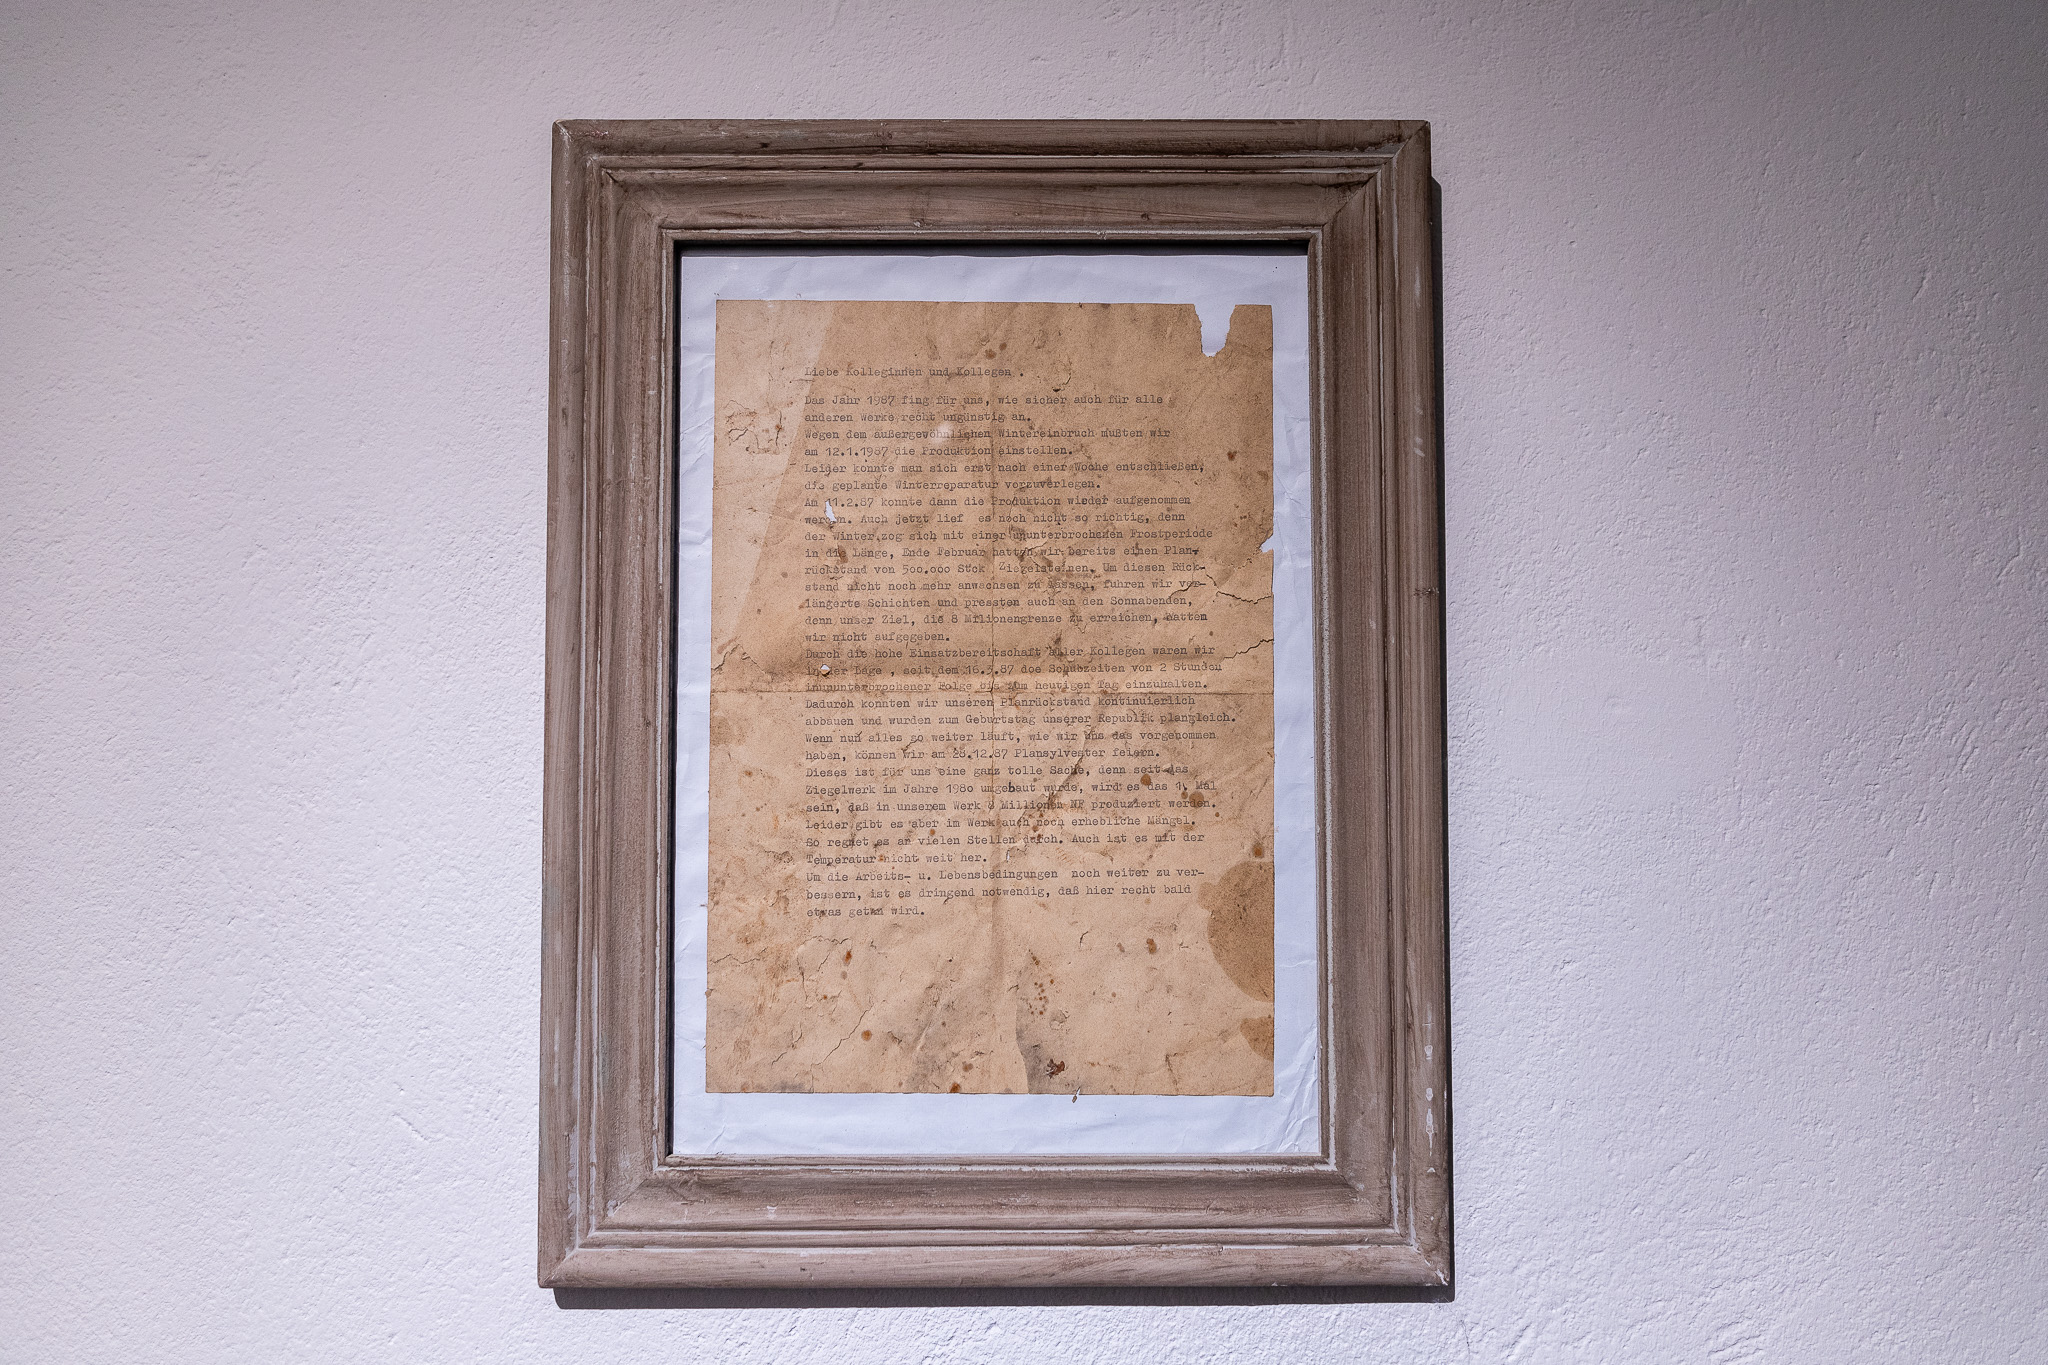 Liebe Kolleginnen und Kollegen .
Das Jahr 1987 fing für uns, wie sicher auch für alle
anderen Werke recht ungünstig an.
Wegen dem außergewöhnlichen Wintereinbruch mußten wir
am 12.1.1987 die Produktion einstellen.
Leider konnte man sich erst nach einer Woche entschließen,
die geplante Winterreparatur vorzuverlegen.
Am 11.2.87 konnte dann die Produktion wieder aufgenommen
werden. Auch jetzt lief es noch nicht so richtig, denn
der Winter zog sich mit einer ununterbrochenen Frostperiode
in die Länge, Ende Februar hatten wir bereits einen Plan-
rückstand von 500.000 Stck Ziegelsteinen. Um diesen Rück-
stand nicht noch mehr anwachsen zu lassen, fuhren wir ver-
längerte Schichten und pressten auch an den Sonnabenden,
denn unser Ziel, die 8 Mflionengrenze zu erreichen, hatten
wir nicht aufgegeben.
Durch die hohe Einsatzbereitschaft aller Kollegen waren wir
in der Lage , seit dem 16.3.87 doe Schubzeiten von 2 Stunden
in ununterbrochener Folge bis zum heutigen Tag einzuhalten.
Dadurch konnten wir unseren Planrückstand kontinuierlich
abbauen und wurden zum Geburtstag unserer Republik plangleich.
Wenn nun alles so weiter läuft, wie wir uns das vorgenommen
haben, können wir am 28.12.87 Plansylvester feiern.
Dieses ist für uns eine ganz tolle Sache, denn seit das
Ziegelwerk im Jahre 1980 umgebaut wurde, wird es das 1. Mal
sein, daß in unserem Werk 8 Millionen NF produziert werden.
Leider gibt es aber im Werk auch noch erhebliche Mängel.
So regnet es an vielen Stellen durch. Auch ist es mit der
Temperatur nicht weit her.
Um die Arbeits- u. Lebensbedingungen noch weiter zu ver-
bessern, ist es dringend notwendig, daß hier recht bald
etwas getan wird.